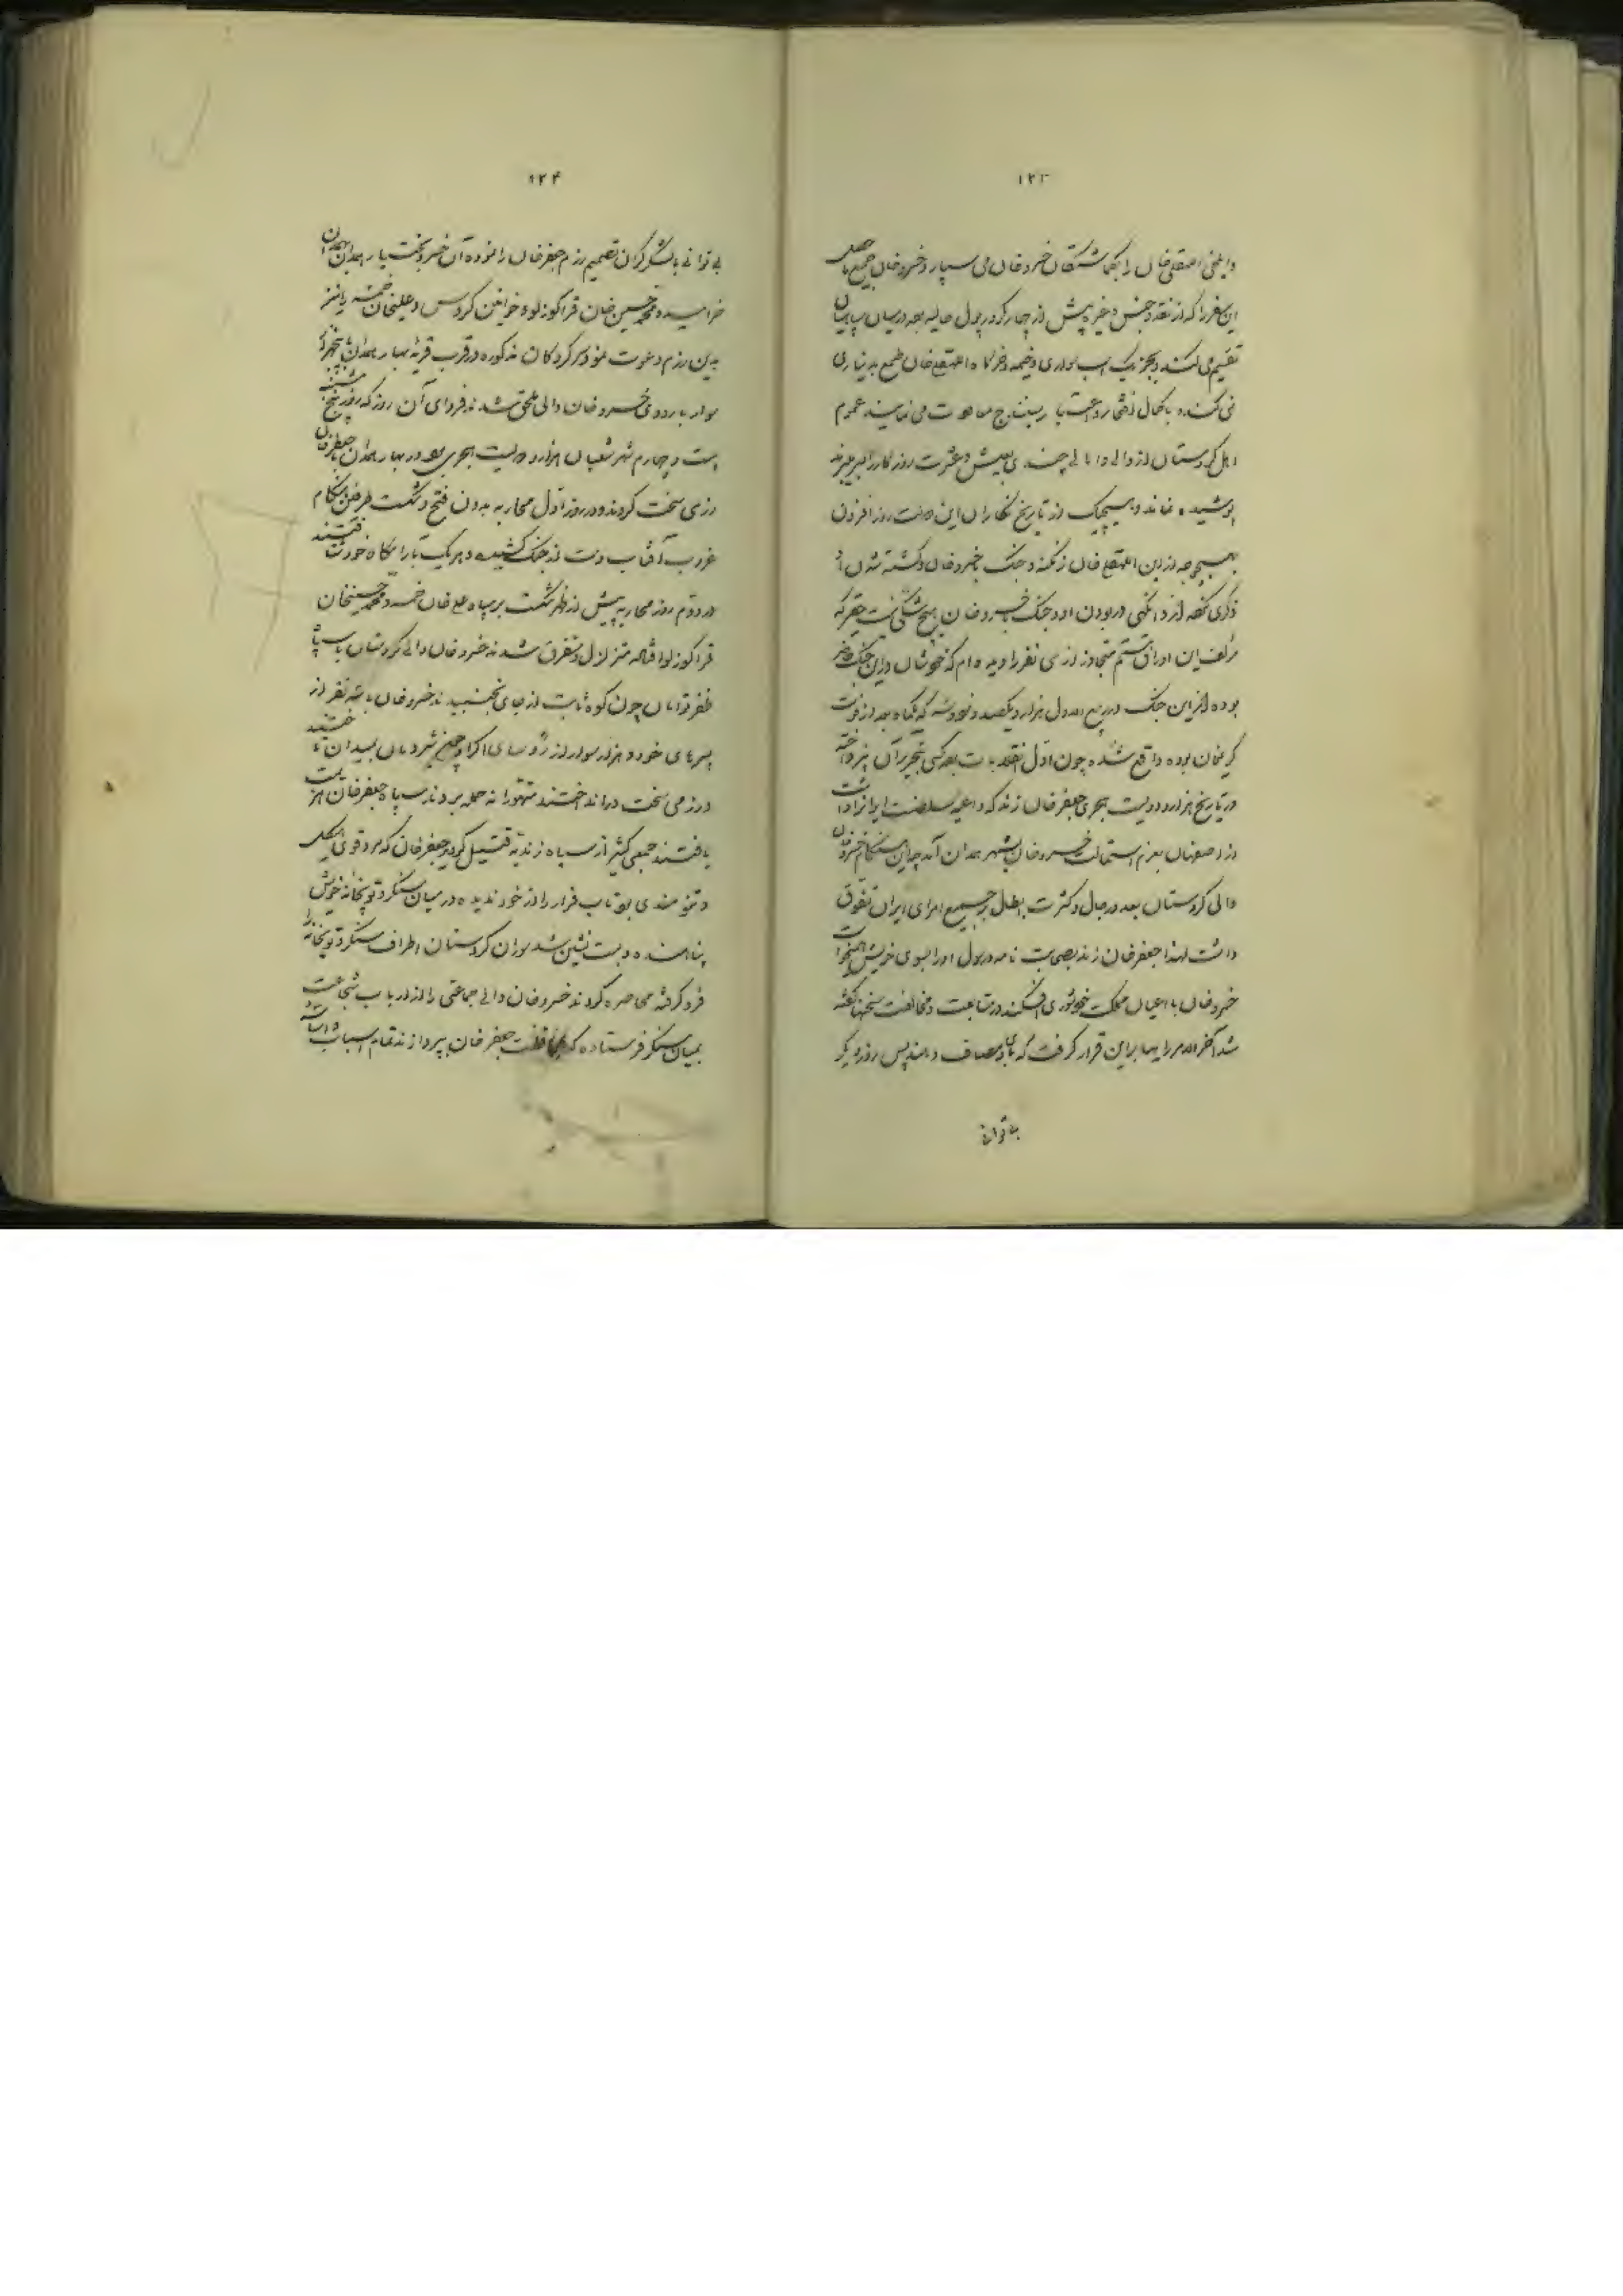 ۱۲۳
و ایلخی اللهقلی خان را بگماشتگان خسرو خان می سپارد و خسرو خان جمیع ماحصل
این سفر را که از نقد و جنس و غیره پیش از چهار کرور پول حالیه بوده در میان سپاهیان
تقسیم می کند و بجز یک اسب سواری و خیمه و خرگاه اللهقلی خان طمع بدیناری
نمی کند و با کمال افتخار و اعتبار بسنندج معاودت می نمایند عموم
اهل کردستان از والی و اهالی چندی بعیش و عشرت روزگار را بسر میبرند
پوشیده نماند و هیچیک از تاریخ نگاران این دولت روز افزون
بهیچوجه از این اللهقلی خان زنگنه و جنگ با خسرو خان و کشته شدن او
ذکری نکرده از آنگهی در بودن او و جنگ با خسرو خان هیچ شکی نیست حقیر که
مؤلف این اوراق هستم متجاوز از سی نفر را دیده ام که خودشان در این جنگ حاضر
بوده اند این جنگ در ربیع الاول هزار و یکصد و نود و سه که یکماه بعد از فوت
کریمخان بوده واقع شده چون اول انقلاب بوده کسی بتحریر آن نپرداخته
در تاریخ هزار و دویست هجری جعفر خان زند که داعیه سلطنت ایران را داشت
از اصفهان بعزم استمالت خسرو خان بشهر همدان آمد چه این هنگام خسرو خان
والی کردستان بعد در جال و کثرت ابطال بر جمیع امرای ایران تفوق
داشت لهذا جعفر خان زند بصحابت نامه و رسول او را بسوی خویش همیخواست
خسرو خان با اعیان مملکت خود شوری افکند در متابعت و مخالفت سخنها گفته
شد آخر الامر رایها بر این قرار گرفت که با وی مصاف دهند پس روز دیگر
به توانی
۱۲۴
بی توانی با لشکر گران تصمیم رزم جعفر خان را نموده آن خسرو بخت یار بهمدان
خرامیده و محمد حسین خان قراگوزلو و خوانین گروس و علیخان خمسه را نیز
به این رزم دعوت نمود سرکردگان مذکوره در قرب قریه بهار همدان با پنجهزار
سوار باردوی خسرو خان والی ملحق شدند فردای آن روز که روز پنجشنبه
بیست و چهارم شهر شعبان هزار و دویست هجری بود در بهار همدان با جعفر خان
رزمی سخت کردند و در روز اول محاربه بدون فتح و شکست طرفین هنگام
غروب آفتاب دست از جنگ کشیده و هر یک بآرامگاه خود رفتند
در دوم روز محاربه پیش از ظهر شکست بر سپاه علیخان خمسه و محمد حسینخان
قراگوزلو افتاده متزلزل و متفرق شدند خسرو خان والی کردستان با سپاه
ظفر توامان چون کوه ثابت از جای نجنبیدند خسرو خان با سه نفر از
پسرهای خود و هزار سوار از رؤسای اکراد و جمیع شیردلان بمیدان تاختند
و رزمی سخت در انداختند متهورانه حمله بردند سپاه جعفر خان هزیمت
یافتند جمعی کثیر از سپاه زندیه قتیل گردید جعفر خان که مرد قوی هیکل
و تنومندی بود تاب فرار را از خود ندیده در میان سنگر و توپخانه خویش
پناهنده و بست نشین شد سواران کردستان اطراف سنگر و توپخانه را
فرو گرفته محاصره کردند خسرو خان والی جماعتی را از ارباب شجاعت
بمیان سنگر فرستاده که بمحافظت جعفر خان بپردازند تمام اسباب و اثاثه